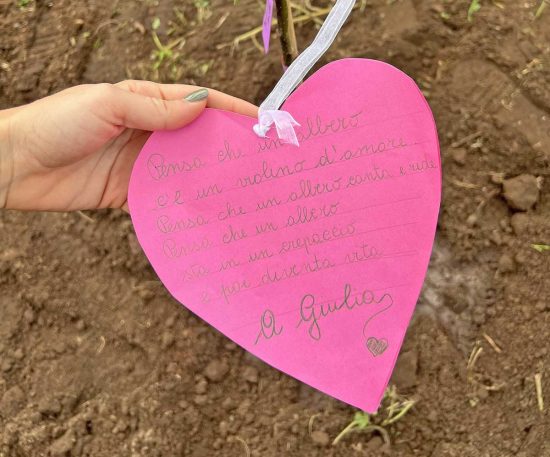 Pensa che un albero
c'è un violino d'amore.
Pensa che un albero canta e ride
Pensa che un albero
sta in un crepaccio
e poi diventa vita
A Giulia